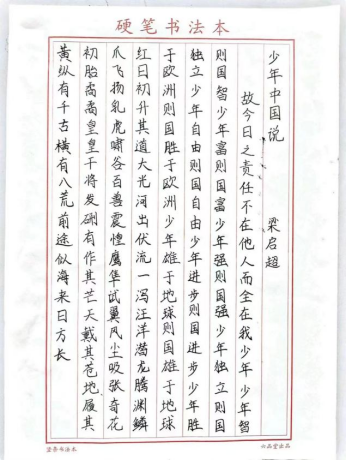 硬笔书法本
少年中国说 梁启超
故今日之责任不在他人而全在我少年少年智
则国智少年富则国富少年强则国强少年独立则国
独立少年自由则国自由少年进步则国进步少年胜
于欧洲则国胜于欧洲少年雄于地球则国雄于地球
红日初升其道大光河出伏流一泻汪洋潜龙腾渊鳞
爪飞扬乳虎啸谷百兽震惶鹰隼试翼风尘吸张奇花
初胎矞矞皇皇干将发硎有作其芒天戴其苍地履其
黄纵有千古横有八荒前途似海来日方长
六品堂出品